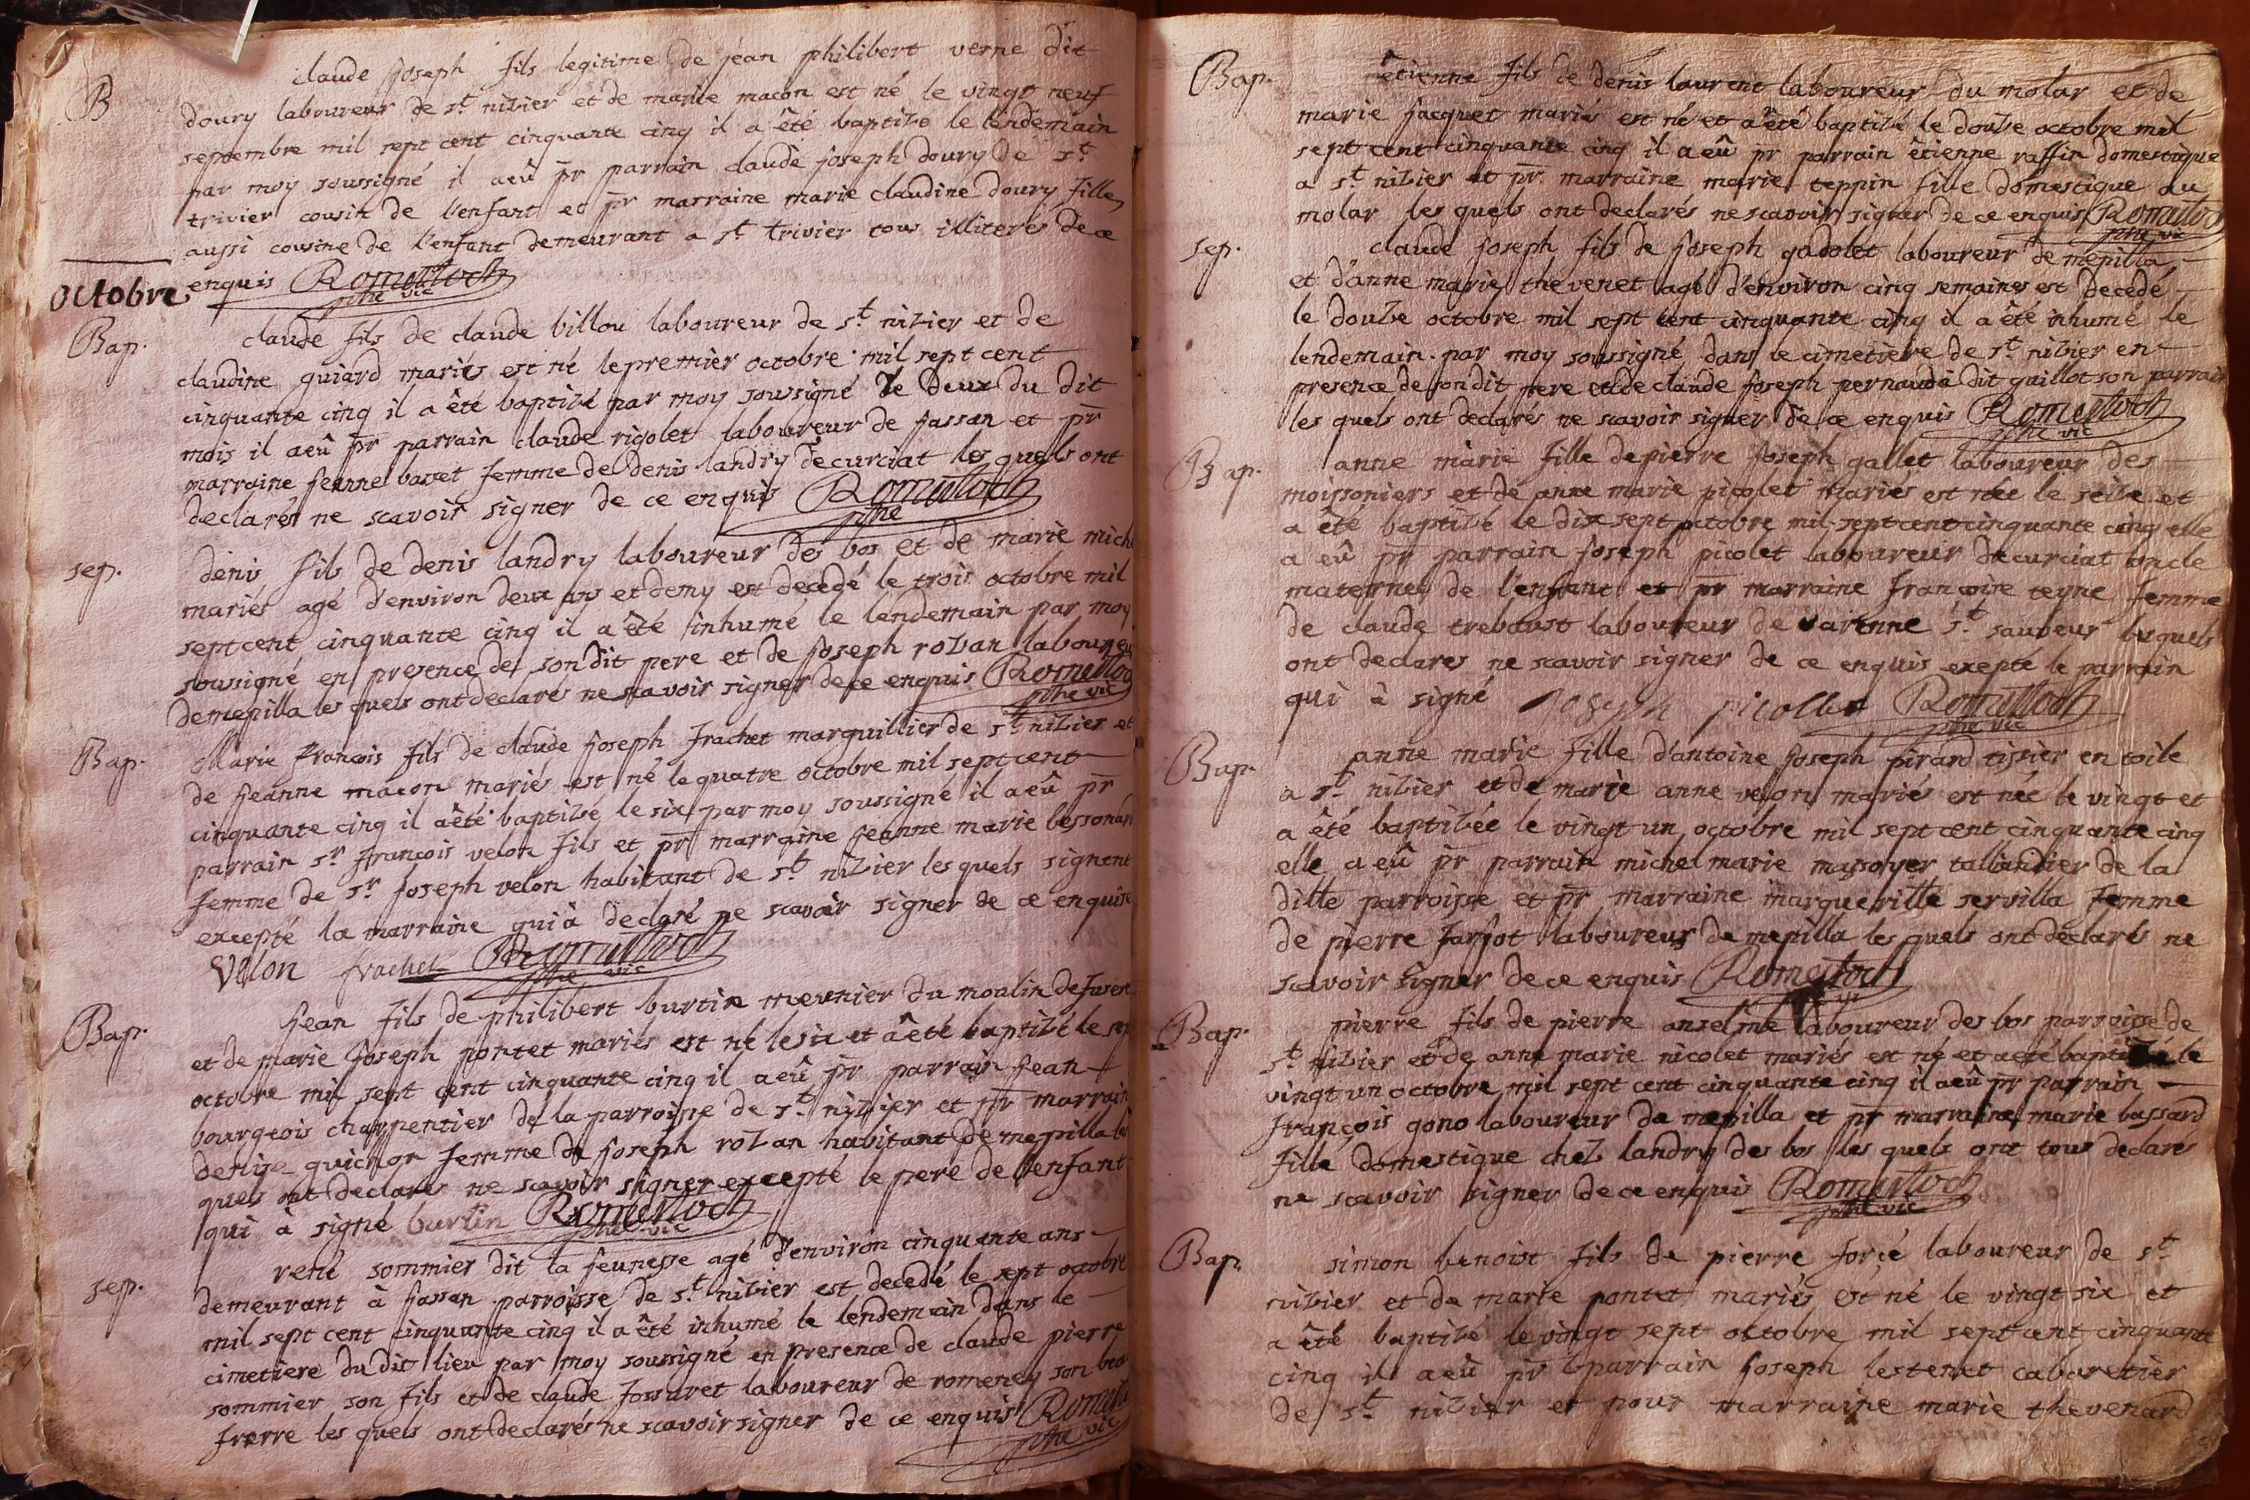 B
claude joseph fils legitime de jean philibert verne dit
doury laboureur de st nizier et de marie macon est né le vingt neuf
septembre mil sept cent cinquante cinq il a êté baptizé le lendemain
par moy soussigné il a eû pr parrain claude joseph doury de st
trivier cousin de l'enfant et pr marraine marie claudine doury fille
aussi cousine de l'enfant demeurant a st trivier tous illiterés de ce
enquis
ptre vic
octobre
Bap.
claude fils de claude billou laboureur de st nizier et de
claudine guiard mariés est né le premier octobre mil sept cent
cinquante cinq il a êté baptizé par moy soussigné le deux du dit
mois il a eû pr parrain claude rigolet laboureur de fassan et pr
marraine jeanne bavet femme de denis landry de curciat les quels ont
declarés ne scavoir signer de ce enquis
ptre
sep.
denis fils de denis landry laboureur des bos et de marie mich
mariés agé d'environ deux ans et demy est decedé le trois octobre mil
sept cent cinquante cinq il a êté inhumé le lendemain par moy
soussigné en presence de son dit pere et de joseph rozan laboureur
de mepilla les quels ont declarés ne scavoir signer de ce enquis
ptre vic
Bap.
Marie françois fils de claude joseph frachet marguillier de st nizier et
de jeanne macon mariés est né le quatre octobre mil sept cent
cinquante cinq il a êté baptizé le six par moy soussigné il a eû pr
parrain sr françois velon fils et pr marraine jeanne marie bessonar
femme de sr joseph velon habitant de st nizier les quels signent
excepté la marraine qui à declaré ne scavoir signer de ce enquise
velon frachet
ptre vic
Bap.
jean fils de philibert burtin meunier du moulin de
et de marie joseph pontet mariés est né le six et a êté baptizé le sep
octobre mil sept cent cinquante cinq il a eû pr parrain jean
bourgeois charpentier de la parroisse de st nizier et pr marrain
denise guichon femme de joseph rozan habitant de mepilla les
quels ont declarés ne scavoir signer excepté le pere de l'enfant
qui à signé burtin
ptre vic
sep.
rené sommier dit la jeunesse agé d'environ cinquante ans
demeurant à fassan parroisse de st nizier est decedé le sept octobre
mil sept cent cinquante cinq il a êté inhumé le lendemain dans le
cimetiere du dit lieu par moy soussigné en presence de claude pierre
sommier son fils et de claude fossuret laboureur de romeney son beau
frerre les quels ont declarés ne scavoir signer de ce enquis
ptre vic
Bap.
êtienne fils de denis laurent laboureur du molar et de
marie jacquet mariés est né et a êté baptizé le douze octobre mil
sept cent cinquante cinq il a eû pr parrain êtienne raffin domestique
a st nizier et pr marraine marie teppin fille domestique au
molar les quels ont declarés ne scavoir signer de ce enquis
ptre vic
sep.
claude joseph fils de joseph gadolet laboureur de mepilla
et d'anne marie thevenet agé d'environ cinq semaines est decedé
le douze octobre mil sept cent cinquante cinq il a êté inhumé le
lendemain par moy soussigné dans le cimetiere de st nizier en
presence de son dit pere et de claude joseph pernaudà dit guillot son parrain
les quels ont declarés ne scavoir signer de ce enquis
ptre vic
Bap.
anne marie fille de pierre joseph gallet laboureur des
moissoniers et de anne marie picolet mariés est née le seize et
a êté baptizé le dix sept octobre mil sept cent cinquante cinq elle
a eû pr parrain joseph picolet laboureur de curciat oncle
maternel de l'enfant et pr marraine françoise teyne femme
de claude laboureur de varenne st sauveur lesquels
ont declarés ne scavoir signer de ce enquis exepté le parrain
qui à signé joseph picollet
ptre vic
Bap.
anne marie fille d'antoine joseph pirard tissier en toile
a st nizier et de marie anne velon mariés est née le vingt et
a êté baptizée le vingt un octobre mil sept cent cinquante cinq
elle a eû pr parrain michel marie massoyer tallandier de la
ditte parroisse et pr marraine margueritte servilla femme
de pierre farjot laboureur de mepilla les quels ont declarés ne
scavoir signer de ce enquis
Bap.
pierre fils de pierre anselme laboureur des bos parroisse de
st nizier et de anne marie nicolet mariés est né et a êté baptizé le
vingt un octobre mil sept cent cinquante cinq il a eû pr parrain
françois gono laboureur de mepilla et pr marraine marie bassard
fille domestique chez landry des bos les quels ont tous declarés
ne scavoir signer de ce enquis
ptre vic
Bap.
simon benoist fils de pierre forcé laboureur de st
nizier et de marie pontet mariés est né le vingt six et
a êté baptizé le vingt sept octobre mil sept cent cinquante
cinq il a eû pr parrain joseph lestenet cabaretier
de st nizier et pour marraine marie thevenard